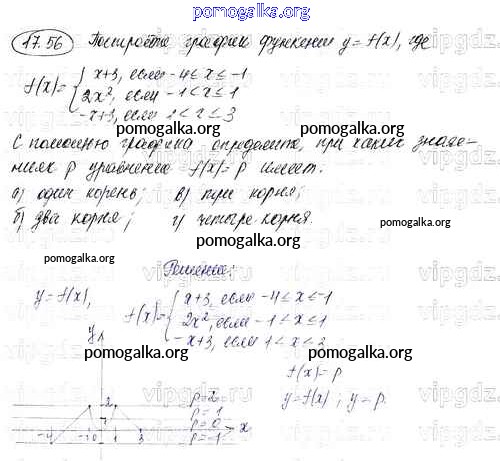 pomogalka.org
17.56 Постройте график функции y = f(x), где
f(x) = { x+3, если -4 ≤ x ≤ -1
2x², если -1 < x ≤ 1
-x+3, если 1 < x ≤ 3
pomogalka.org
С помощью графика определите, при каких значе-
ниях p уравнение f(x) = p имеет:
pomogalka.org pomogalka.org
а) один корень; в) три корня;
б) два корня; г) четыре корня.
pomogalka.org
pomogalka.org
Решение:
y = f(x),
f(x) = { x+3, если -4 ≤ x ≤ -1
2x², если -1 ≤ x ≤ 1
-x+3, если 1 < x ≤ 3
pomogalka.org pomogalka.org
f(x) = p
y = f(x); y = p.
y
2
p = 2
p = 1
p = 0
p = -1
-4 -1 0 1 3 x
pomogalka.org
vipgdz.com